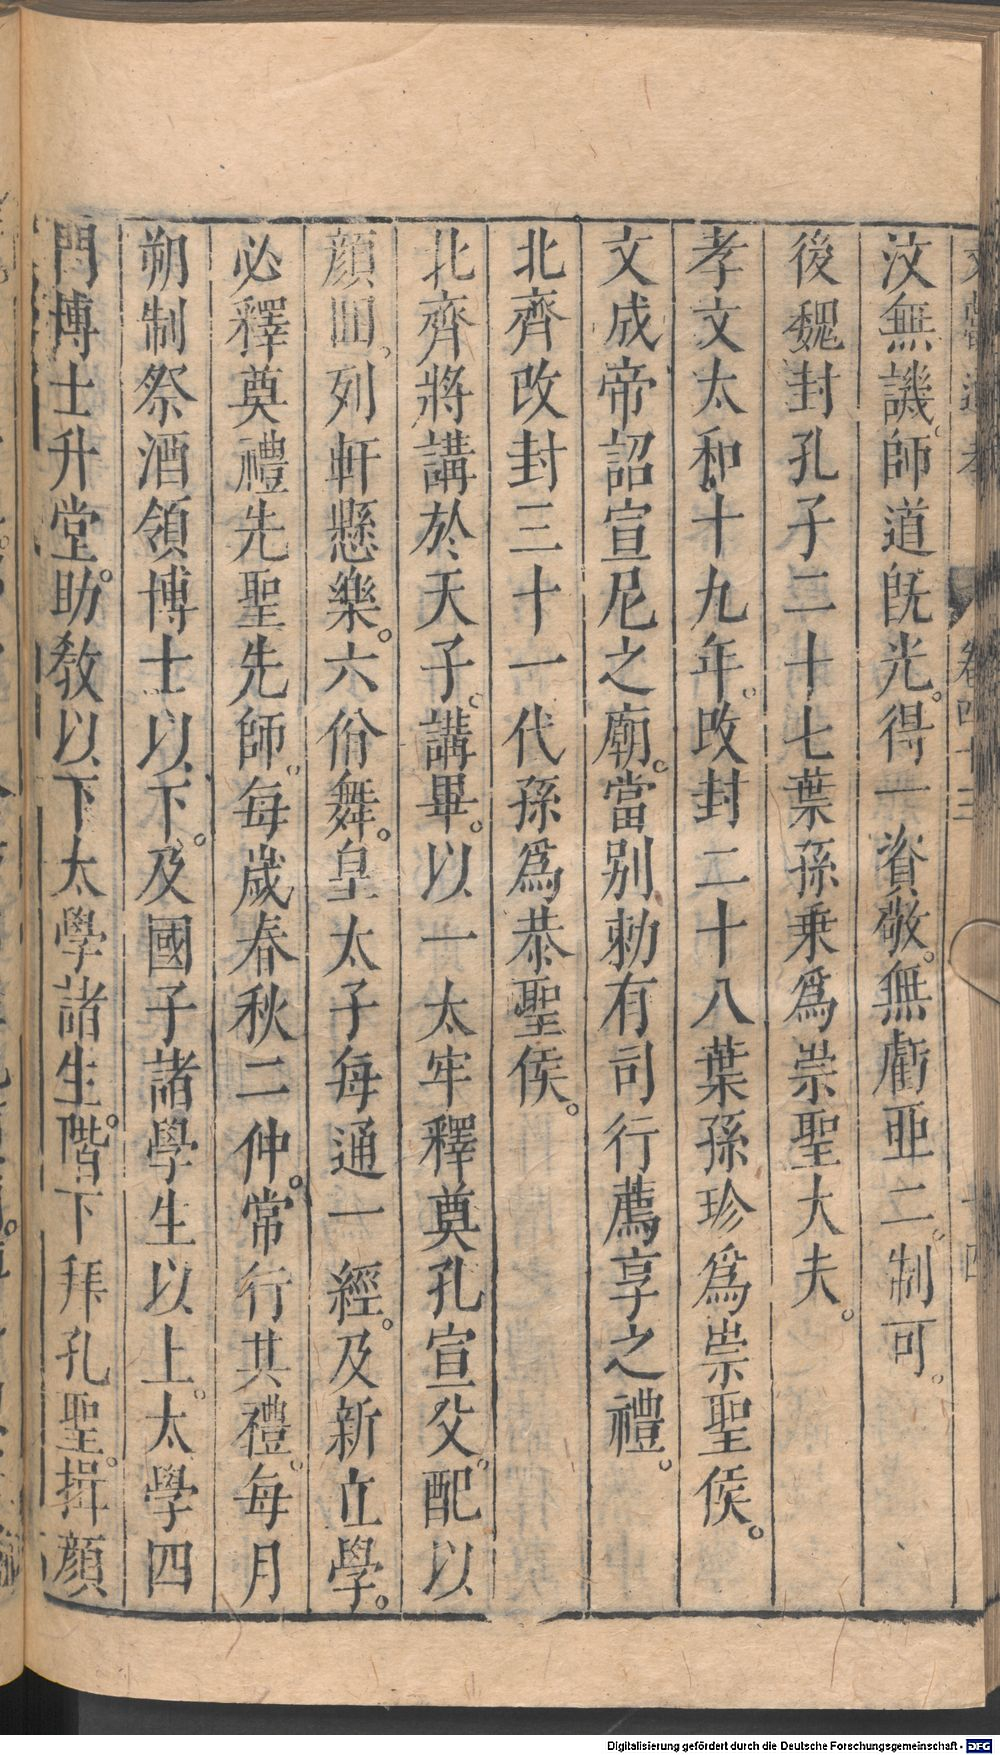 文獻通考 卷四十三 十四
汶無譏。師道旣光。得一資敬。無虧亜二。制可。
後魏封孔子二十七葉孫乗爲崇聖大夫。
孝文太和十九年。改封二十八葉孫珍爲崇聖侯。
文成帝詔宣尼之廟。當别勅有司行薦享之禮。
北齊改封三十一代孫爲恭聖侯。
北齊將講於天子。講畢。以一太牢釋奠孔宣父。配以
顔回。列軒懸樂。六佾舞。皇太子每通一經。及新立學。
必釋奠禮先聖先師。每歲春秋二仲。常行其禮。每月
朔制祭酒領博士以下。及國子諸學生以上。太學四
門博士升堂。助敎以下太學諸生。階下拜孔聖。揖顔
Digitalisierung gefördert durch die Deutsche Forschungsgemeinschaft - DFG